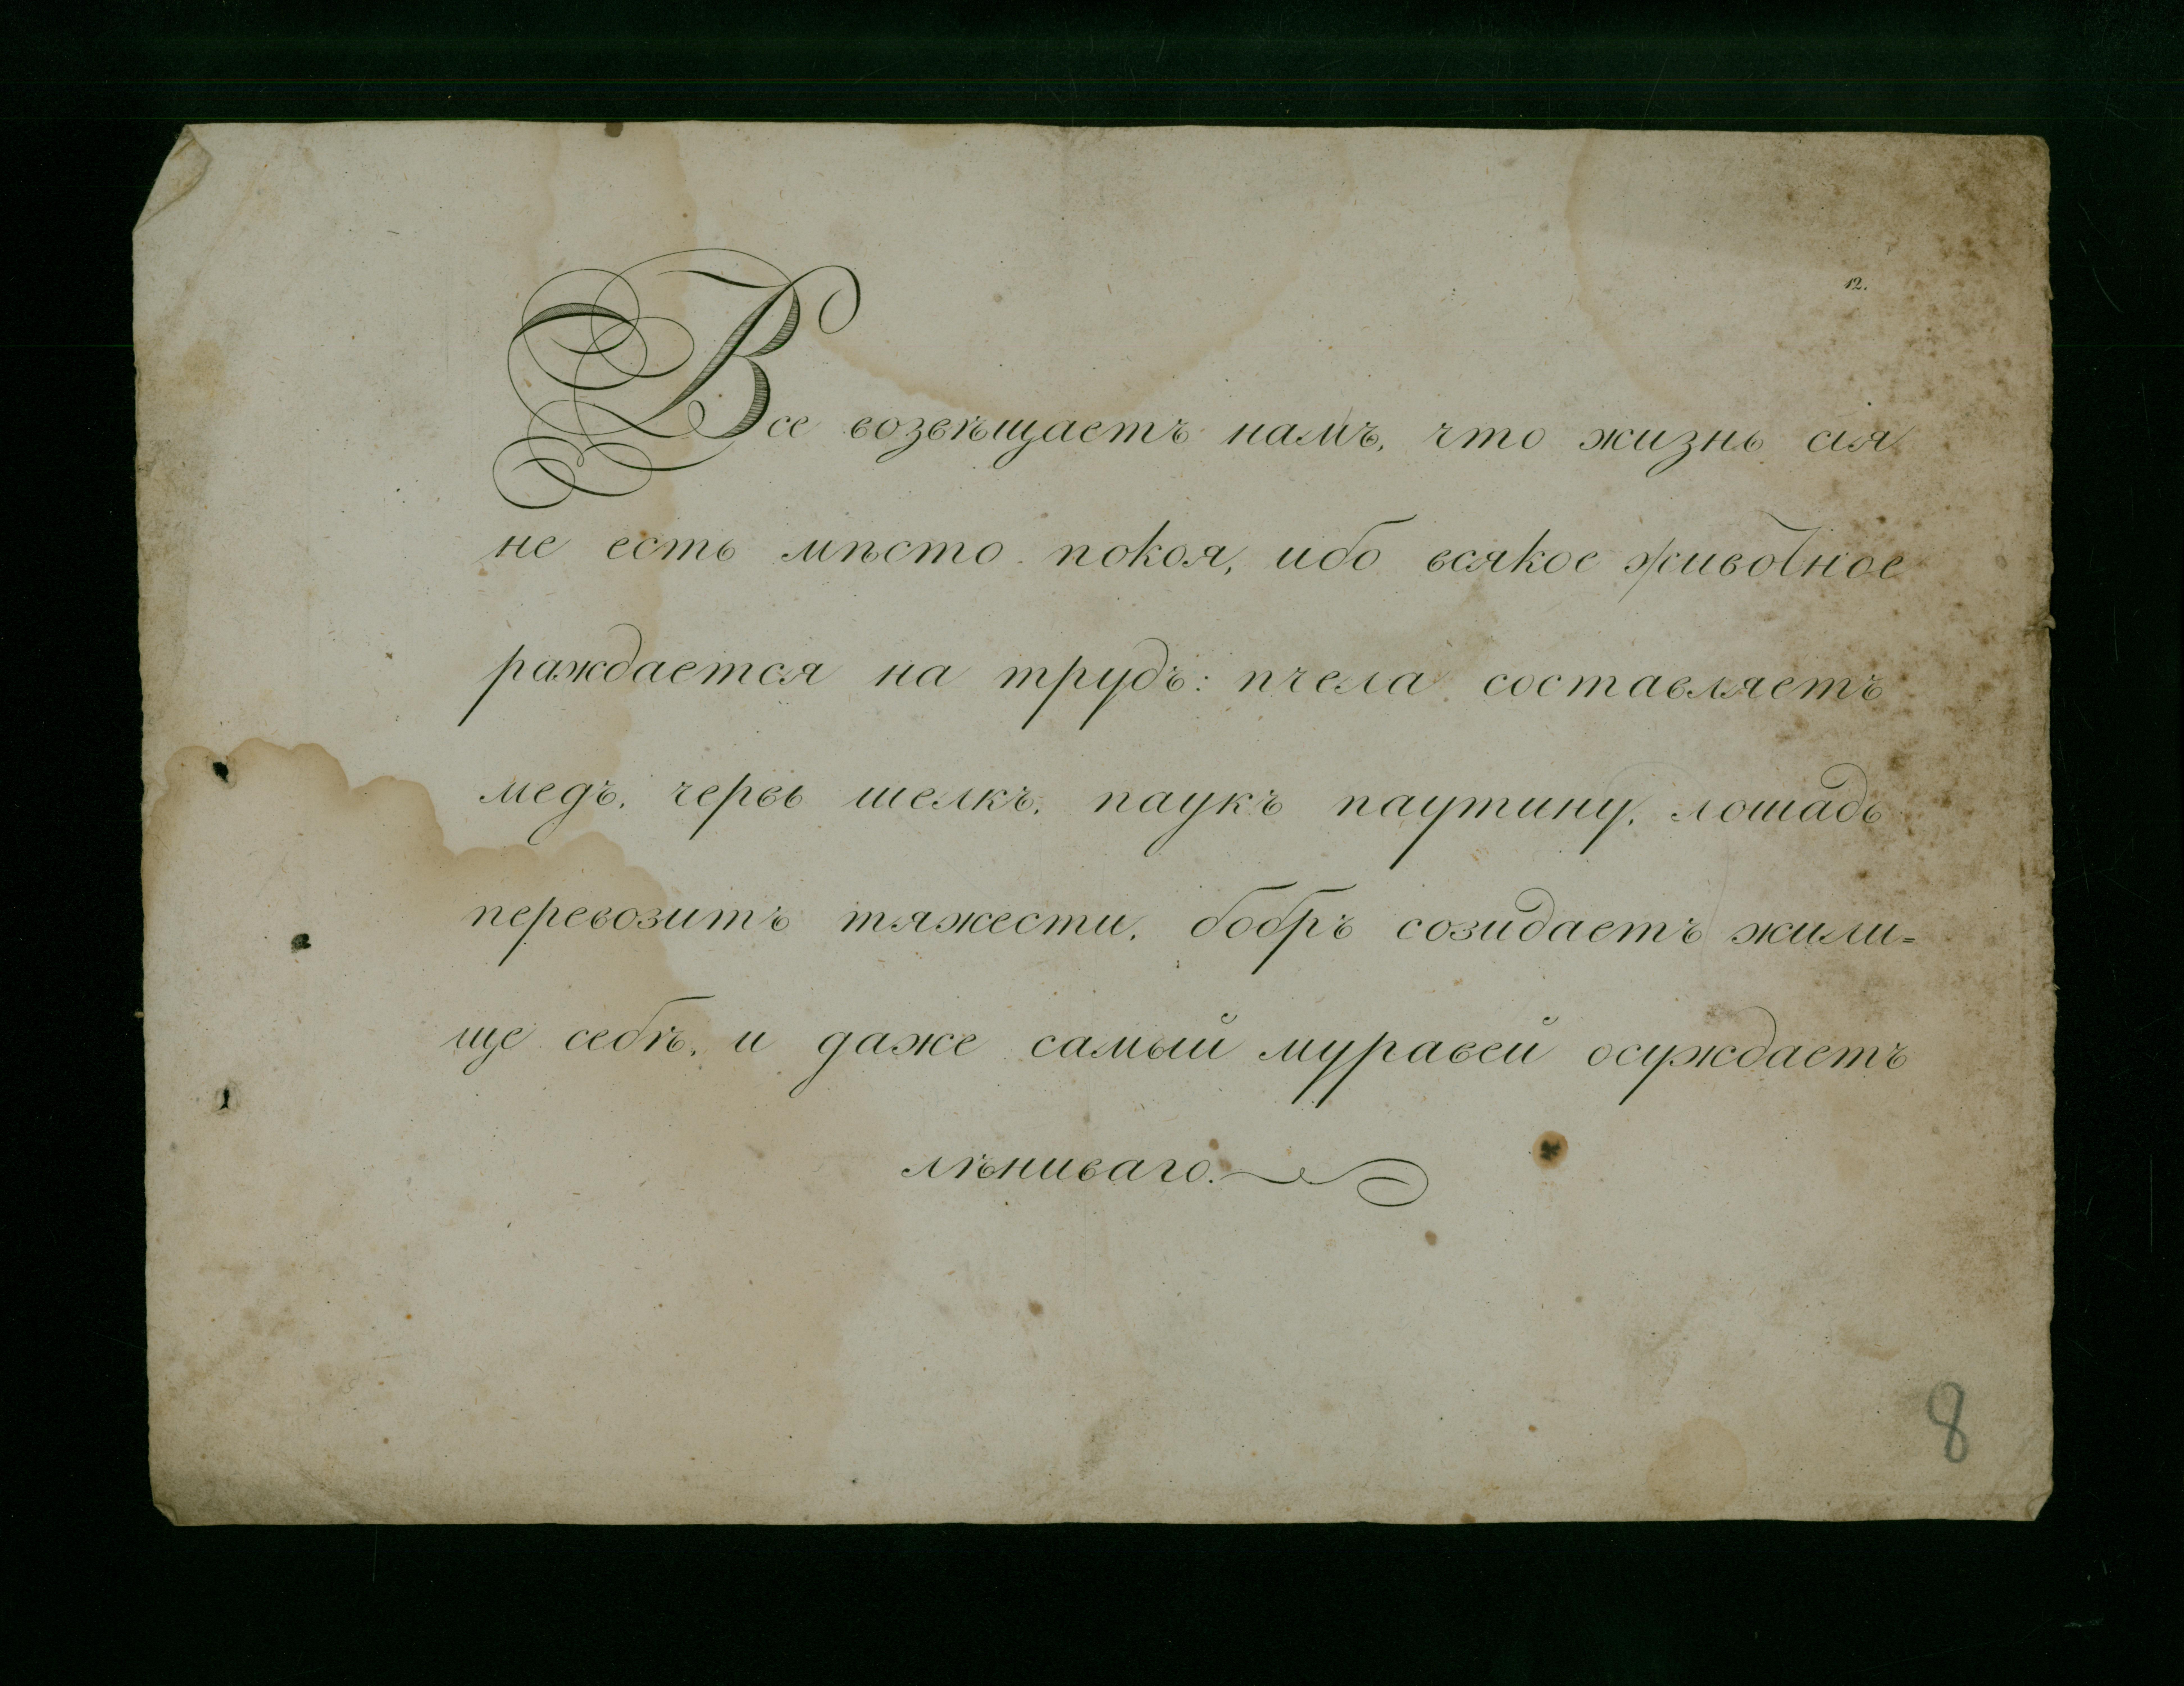 12.
Все возвѣщаетъ намъ, что жизнь сія
не есть мѣсто покоя, ибо всякое животное
раждается на трудъ: пчела составляетъ
медъ, червь шелкъ, паукъ паутину, лошадь
перевозитъ тяжести, бобръ созидаетъ жили=
ще себѣ, и даже самый муравей осуждаетъ
лѣниваго.
8